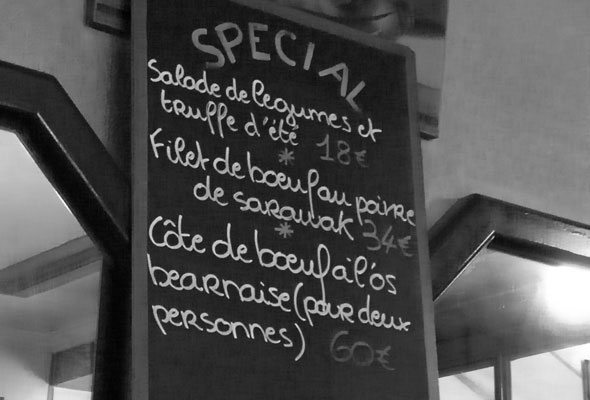 SPECIAL
Salade de legumes et
truffe d'été 18€
*
Filet de bœuf au poivre
de sarawak 34€
*
Côte de bœuf à l'os
bearnaise (pour deux
personnes) 60€